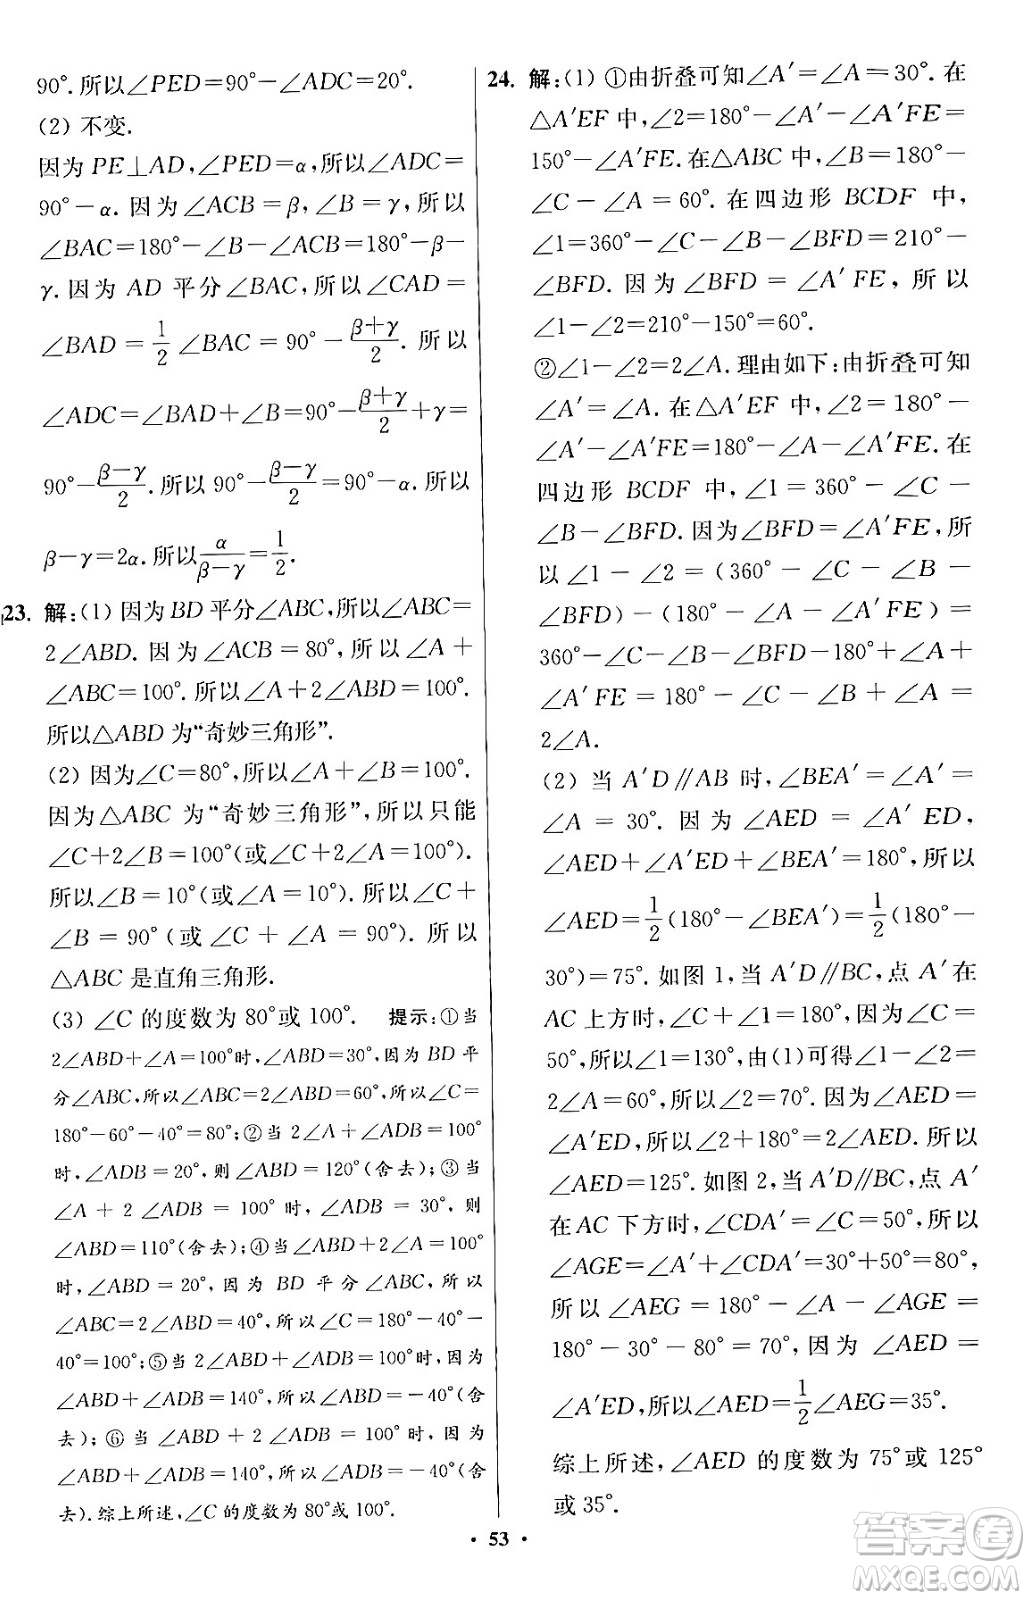 90°.所以∠PED=90°-∠ADC=20°.
(2) 不变.
因为 PE⊥AD,∠PED=α,所以∠ADC=
90°-α.因为∠ACB=β,∠B=γ,所以
∠BAC=180°-∠B-∠ACB=180°-β-
γ.因为 AD 平分∠BAC,所以∠CAD=
∠BAD=1/2∠BAC=90°-(β+γ)/2.所以
∠ADC=∠BAD+∠B=90°-(β+γ)/2+γ=
90°-(β-γ)/2.所以 90°-(β-γ)/2=90°-α.所以
β-γ=2α.所以α/(β-γ)=1/2.
23. 解:(1) 因为 BD 平分∠ABC,所以∠ABC=
2∠ABD.因为∠ACB=80°,所以∠A+
∠ABC=100°.所以∠A+2∠ABD=100°.
所以△ABD 为“奇妙三角形”.
(2) 因为∠C=80°,所以∠A+∠B=100°.
因为△ABC 为“奇妙三角形”,所以只能
∠C+2∠B=100°(或∠C+2∠A=100°).
所以∠B=10°(或∠A=10°).所以∠C+
∠B=90°(或∠C+∠A=90°).所以
△ABC 是直角三角形.
(3) ∠C 的度数为 80°或 100°. 提示:①当
2∠ABD+∠A=100°时,∠ABD=30°,因为 BD 平
分∠ABC,所以∠ABC=2∠ABD=60°,所以∠C=
180°-60°-40°=80°;②当 2∠A+∠ABD=100°
时,∠ADB=20°,则∠ABD=120°(舍去);③当
∠A+2∠ADB=100°时,∠ADB=30°,则
∠ABD=110°(舍去);④当∠ADB+2∠ABD=100°
时,∠ABD=20°,因为 BD 平分∠ABC,所以
∠ABC=2∠ABD=40°,所以∠C=180°-40°-
40°=100°;⑤当 2∠ADB+∠ABD=100°时,因为
∠ABD+∠ADB=140°,所以∠ADB=-40°(舍
去);⑥当∠ABD+2∠ADB=100°时,因为
∠ABD+∠ADB=140°,所以∠ADB=-40°(舍
去).综上所述,∠C 的度数为 80°或 100°.
24. 解:(1) ①由折叠可知∠A′=∠A=30°.在
△A′EF 中,∠2=180°-∠A′-∠A′FE=
150°-∠A′FE.在△ABC 中,∠B=180°-
∠C-∠A=60°.在四边形 BCDF 中,
∠1=360°-∠C-∠B-∠BFD=210°-
∠BFD.因为∠BFD=∠A′FE,所以
∠1-∠2=210°-150°=60°.
②∠1-∠2=2∠A.理由如下:由折叠可知
∠A′=∠A.在△A′EF 中,∠2=180°-
∠A′-∠A′FE=180°-∠A-∠A′FE.在
四边形 BCDF 中,∠1=360°-∠C-
∠B-∠BFD.因为∠BFD=∠A′FE,所
以∠1-∠2=(360°-∠C-∠B-
∠BFD)-(180°-∠A-∠A′FE)=
360°-∠C-∠B-∠BFD-180°+∠A+
∠A′FE=180°-∠C-∠B+∠A=
2∠A.
(2) 当 A′D∥AB 时,∠BEA′=∠A′=
∠A=30°.因为∠AED=∠A′ED,
∠AED+∠A′ED+∠BEA′=180°,所以
∠AED=1/2(180°-∠BEA′)=1/2(180°-
30°)=75°.如图 1,当 A′D∥BC,点 A′在
AC 上方时,∠C+∠1=180°.因为∠C=
50°,所以∠1=130°,由(1)可得∠1-∠2=
2∠A=60°,所以∠2=70°.因为∠AED=
∠A′ED,所以∠2+180°=2∠AED.所以
∠AED=125°.如图 2,当 A′D∥BC,点 A′
在 AC 下方时,∠CDA′=∠C=50°,所以
∠AGE=∠A′+∠CDA′=30°+50°=80°,
所以∠AEG=180°-∠A-∠AGE=
180°-30°-80°=70°,因为∠AED=
∠A′ED,所以∠AED=1/2∠AEG=35°.
综上所述,∠AED 的度数为 75°或 125°
或 35°.
· 53 ·
答案圈
MXQE.COM